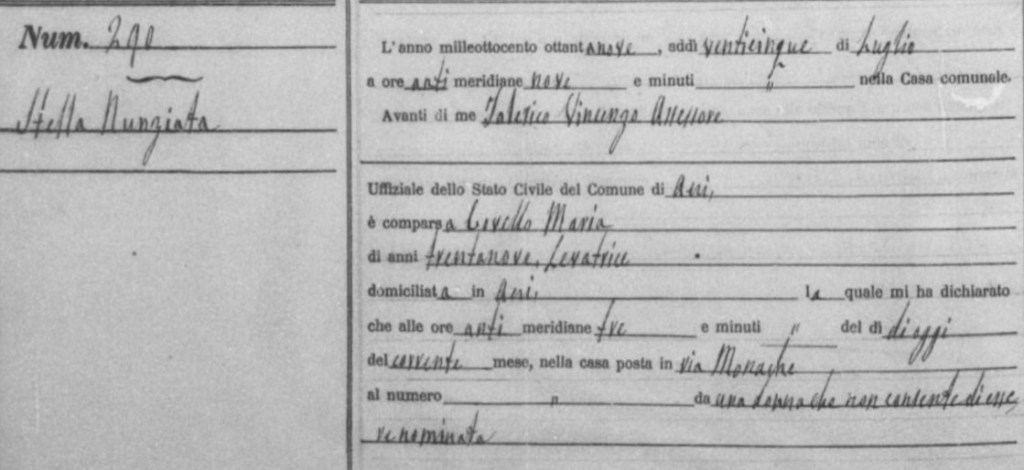 Num. 290
Stella Nunziata
L'anno milleottocento ottantanove, addì venticinque di Luglio
a ore anti meridiane nove e minuti " nella Casa comunale.
Avanti di me Vincenzo Assessore
Uffiziale dello Stato Civile del Comune di Acri,
è comparsa Covello Maria
di anni trentanove, Levatrice
domiciliata in Acri, la quale mi ha dichiarato
che alle ore anti meridiane tre e minuti " del dì di oggi
del corrente mese, nella casa posta in via Monache
al numero " da una donna che non consente di esse
re nominata